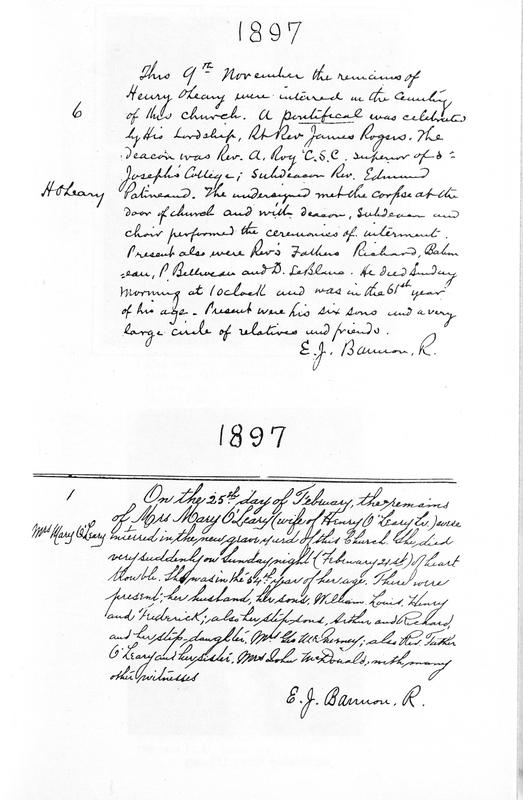 1897
6
H O'Leary
This 9th November the remains of
Henry O'Leary were interred in the Cemetery
of this church. A pontifical was celebrated
by His Lordship, Rt Rev James Rogers. The
deacon was Rev. A. Roy C.S.C. Superior of St
Joseph's College; Subdeacon Rev. Edmund
Patineaud. The undersigned met the corpse at the
door of church and with deacon, Subdeacon and
choir performed the ceremonies of interment.
Present also were Rev's Fathers Richard, Babin
eau, P. Belliveau and D. LeBlanc. He died Sunday
morning at 1 oclock and was in the 61st year
of his age. Present were his six sons and a very
large circle of relatives and friends.
E. J. Bannon, R.
1897
1
Mrs Mary O'Leary
On the 25th day of February, the remains
of Mrs Mary O'Leary (wife of Henry O'Leary Sr.) were
interred in the new graveyard of this Church. She died
very suddenly on Sunday night (February 21st) of heart
trouble. She was in the 54th year of her age. There were
present; her husband, her sons, William Louis, Henry
and Frederick; also her step-sons, Arthur and Richard,
and her step-daughter, Mrs Geo McInerney; also Rev. Father
O'Leary and her sister, Mrs John McDonald, with many
other witnesses
E. J. Bannon, R.